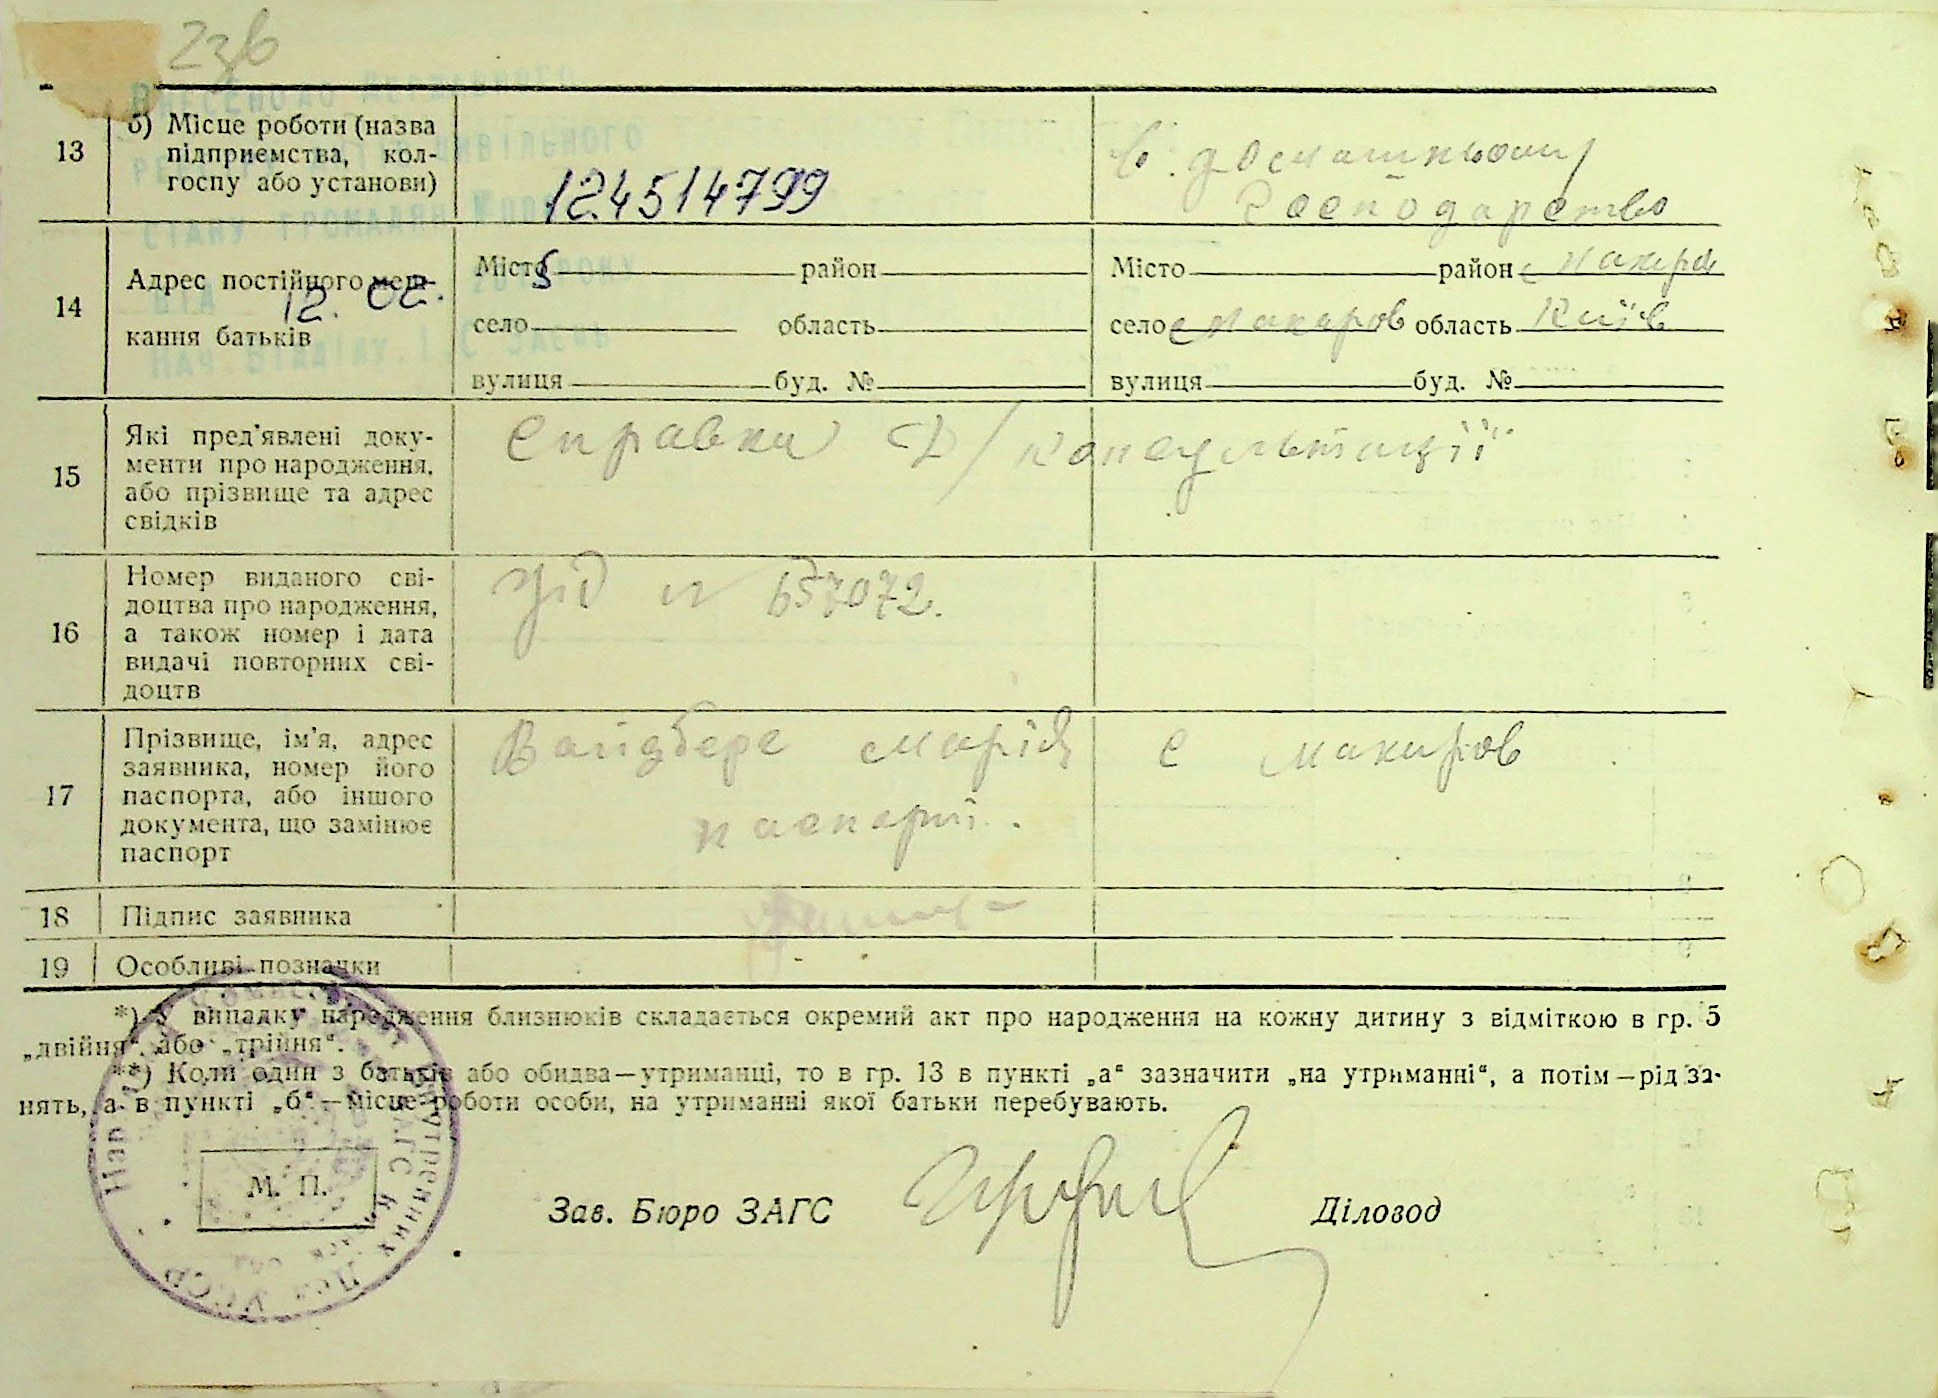 23в
Внесено до Державного
реєстру актів цивільного
стану громадян
13
б) Місце роботи (назва
підприємства, кол-
госпу або установи)
124514799
В домашньому
господарство
14
Адрес постійного меш-
кання батьків
12. 02.
Місто район
село область
вулиця буд. №
Місто район Макарів
село Макаров область Київ
вулиця буд. №
15
Які пред'явлені доку-
менти про народження,
або прізвище та адрес
свідків
Справка Д/консультації
16
Номер виданого сві-
доцтва про народження,
а також номер і дата
видачі повторних сві-
доцтв
№ 657072.
17
Прізвище, ім'я, адрес
заявника, номер його
паспорта, або іншого
документа, що замінює
паспорт
Вайзберг Марія с Макаров
паспорт.
18
Підпис заявника
19
Особливі позначки
*) У випадку народження близнюків складається окремий акт про народження на кожну дитину з відміткою в гр. 5
„двійня“ або „трійня“.
**) Коли один з батьків або обидва—утриманці, то в гр. 13 в пункті „а“ зазначити „на утриманні“, а потім—рід за-
нять, а в пункті „б“—місце роботи особи, на утриманні якої батьки перебувають.
М. П.
Зав. Бюро ЗАГС
Діловод